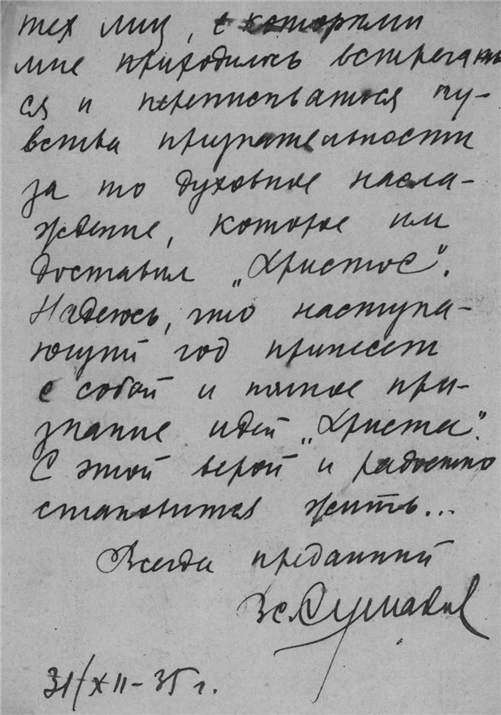 тех лиц, с которыми
мне приходилось встречать
ся и переписываться чу-
вства признательности
за то духовное насла-
ждение, которое им
доставил „Христос".
Надеюсь, что наступа-
ющий год принесет
с собой и полное при-
знание идей „Христа".
С этой верой и радостно
становится жить...
Всегда преданный
31/XII-35 г.